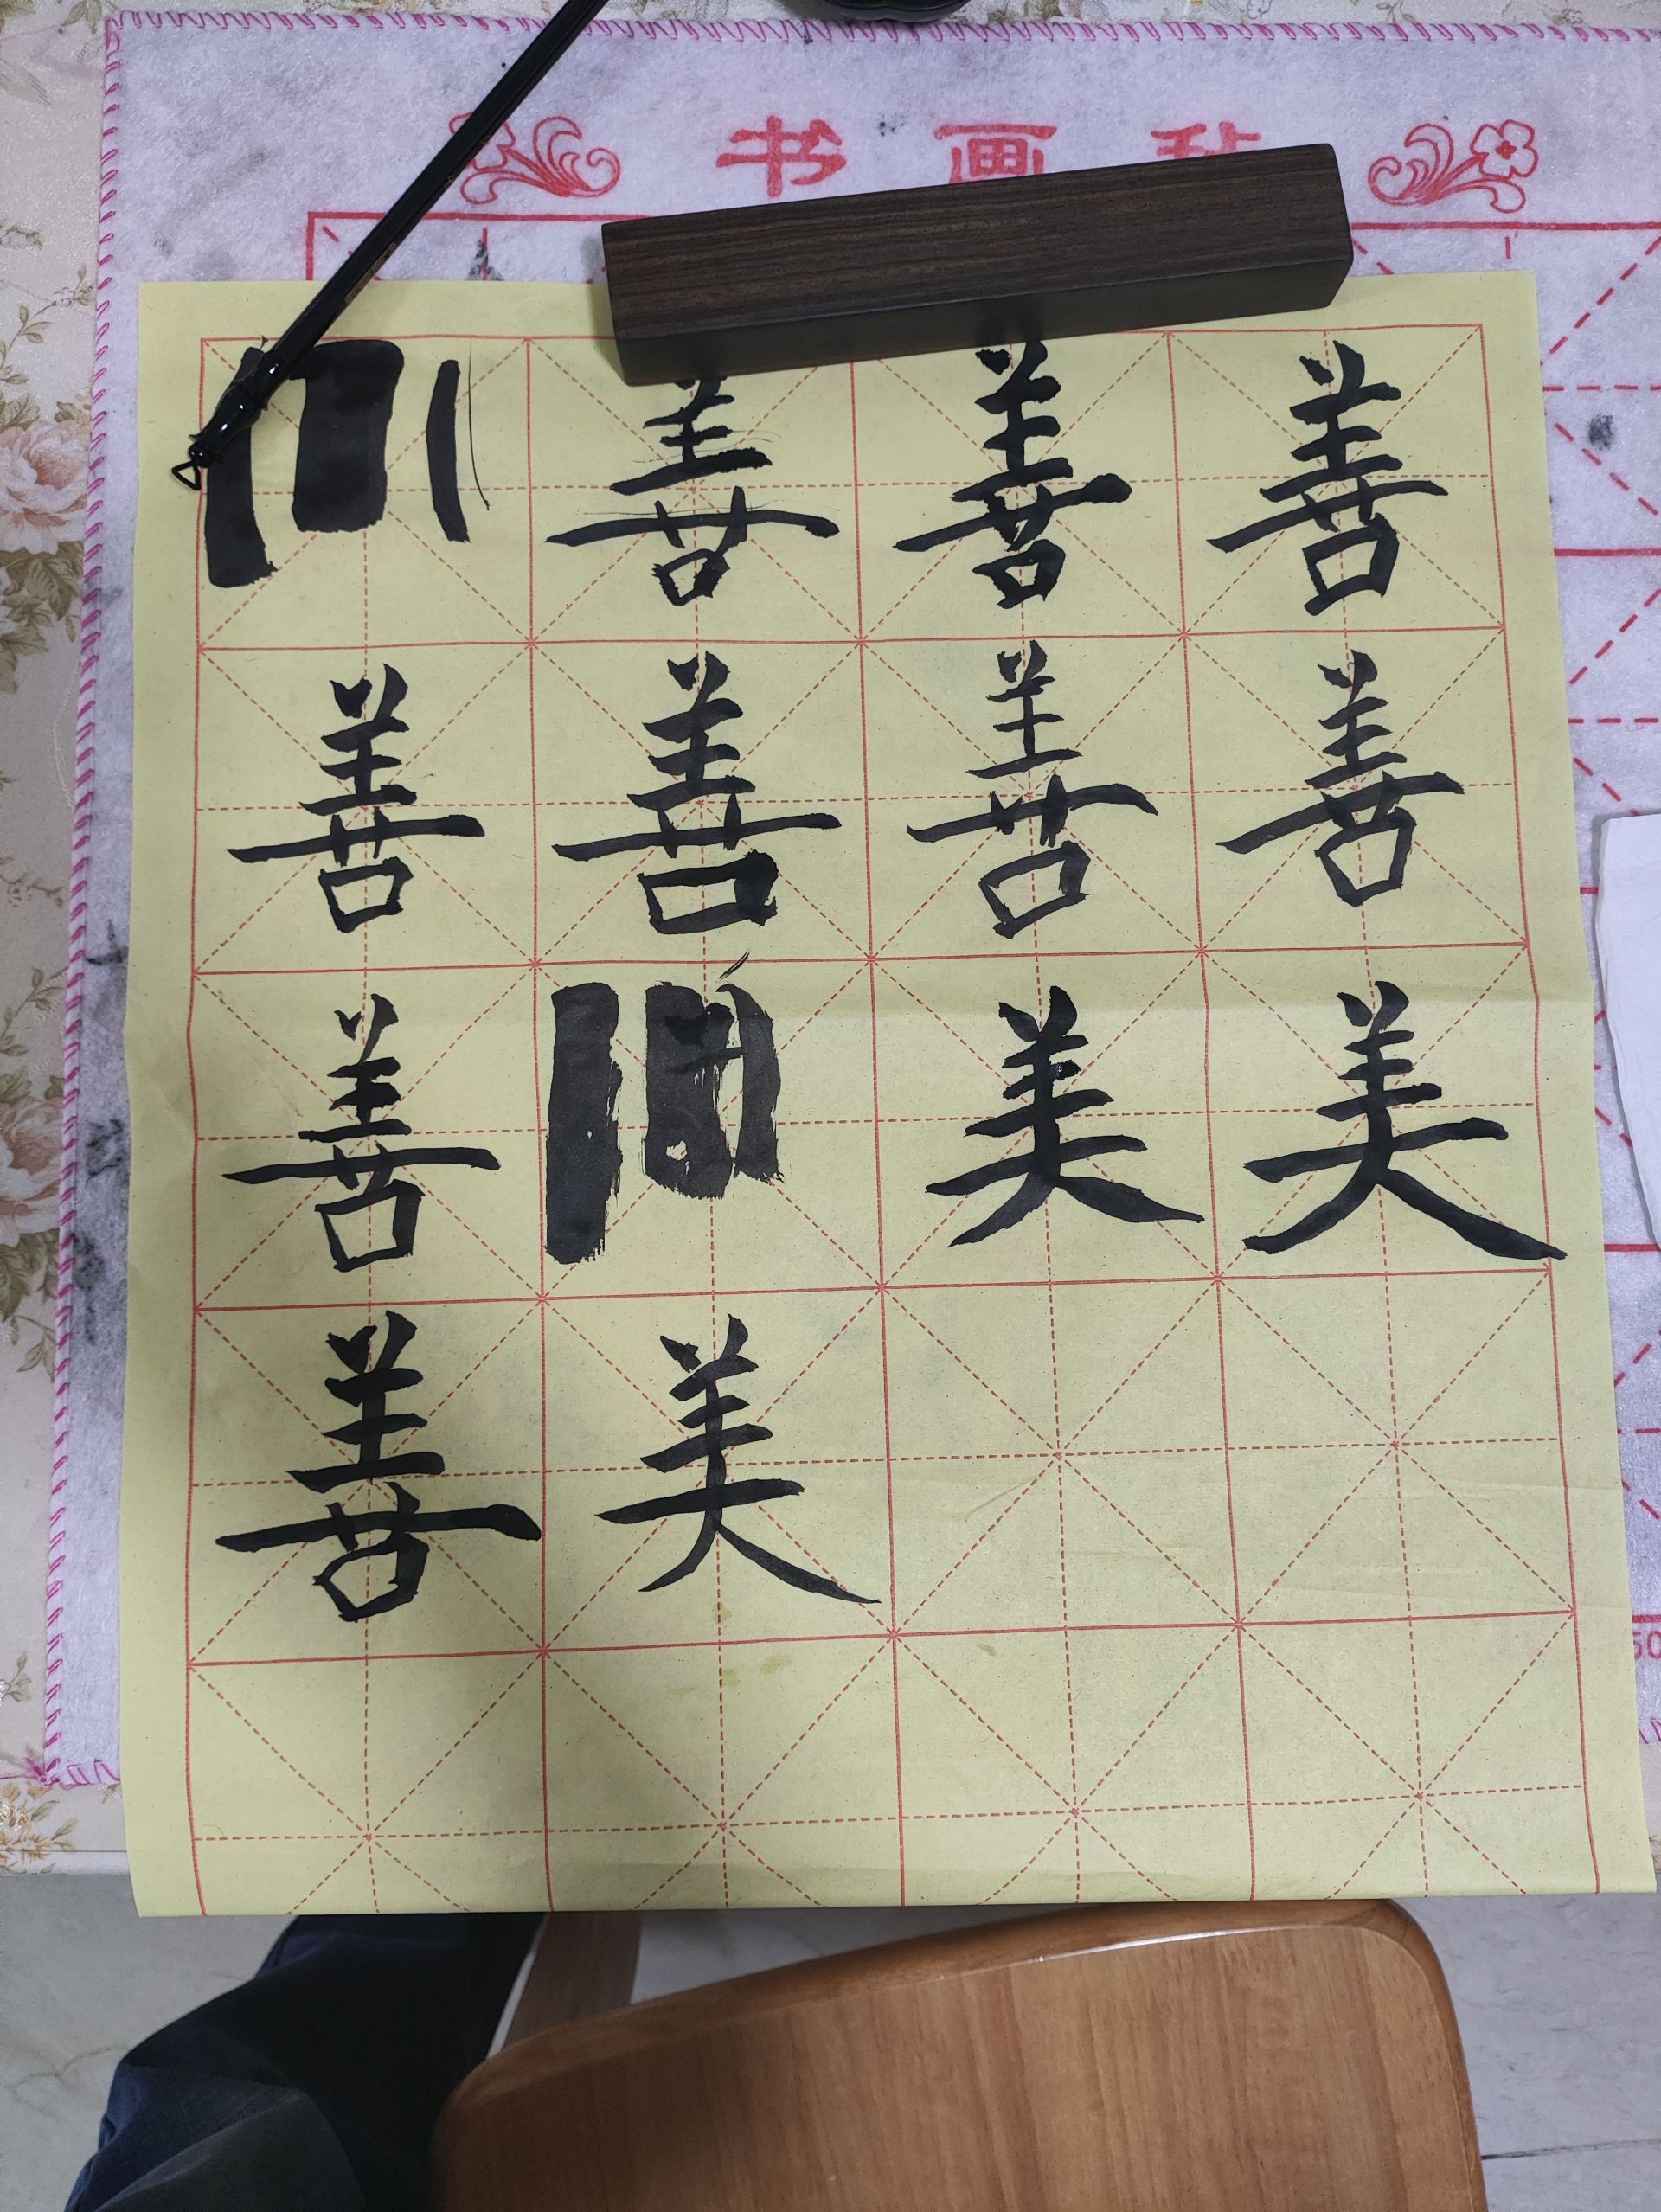 书画毡
善善善
善善善善
善美美
善美
50